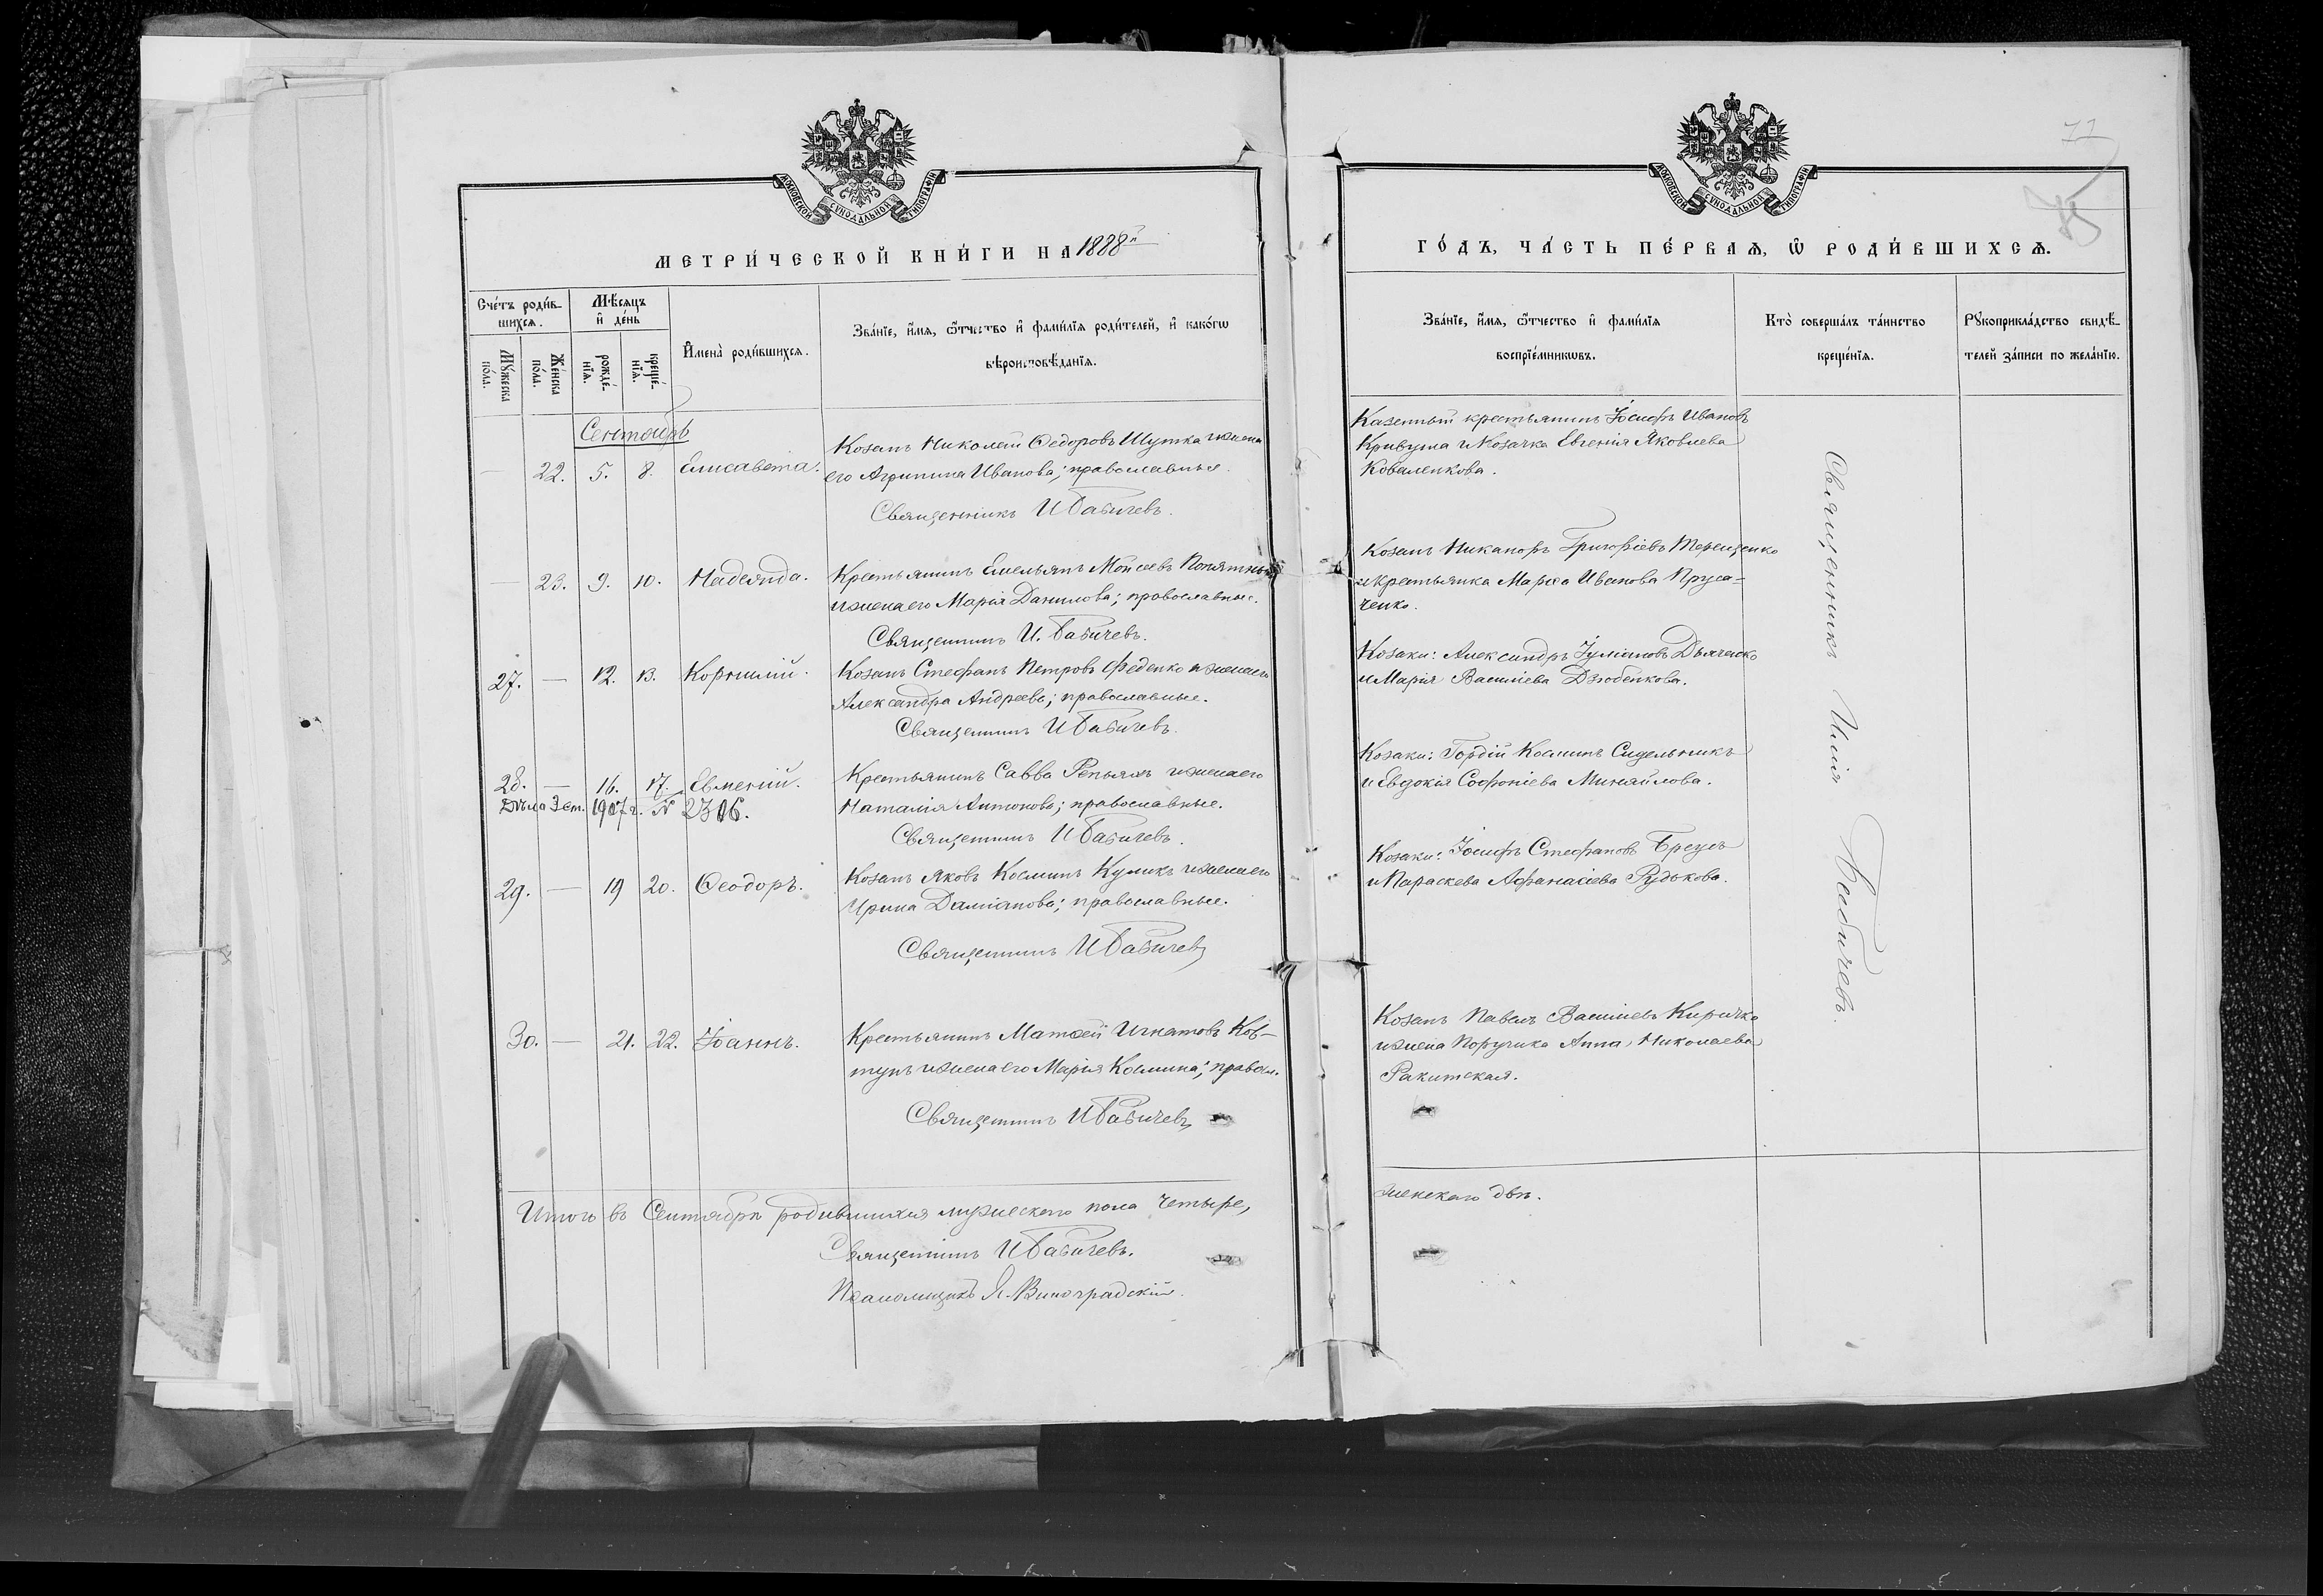 МОСКОВСКОЙ СУНОДАЛЬНОЙ ТИПОГРАФІИ
МЕТРИ́ЧЕСКОЙ КНИ́ГИ НА 1888й
Сче́тъ роди́в-
шихся.
Мѣ́сяцъ
и҆ де́нь
И҆мена̀ роди́вшихся.
Зва́нїе, и҆́мя, ѻ҆́тчество и҆ фами́лїя роди́телей, и҆ како́гѡ
вѣроисповѣ́данїя.
Мꙋ́жеска
по́ла.
Же́нска
по́ла.
рожде́-
нїя.
креще́-
нїя.
Сентябрь
— 22. 5. 8. Елисавета. Козакъ Николай Ѳедоровъ Шутка и жена
его Агрипина Иванова; православные.
Священникъ И Бабичевъ.
— 23. 9. 10. Надежда. Крестьянинъ Емельянъ Моисеевъ
и жена его Марія Данилова; православные.
Священникъ И. Бабичевъ.
27. — 12. 13. Корнилій. Козакъ Стефанъ Петровъ Феденко и жена его
Александра Андреева; православные.
Священникъ И Бабичевъ.
28. — 16. 17. Евмений. Крестьянинъ Савва Репьяхъ и жена его
1907 г. № 2316. Наталія Антонова; православные.
Священникъ И Бабичевъ.
29. — 19 20. Ѳеодоръ. Козакъ Яковъ Косминъ Куликъ и жена его
Ирина Даміанова; православные.
Священникъ И Бабичевъ
30. — 21. 22. Іоаннъ. Крестьянинъ Матѳей Игнатовъ Ков-
тунъ и жена его Марія Космина; правосл.
Священникъ И Бабичевъ
Итого въ Сентябрѣ родившихся мужескаго пола четыре,
Священникъ И Бабичевъ.
Псаломщикъ Я. Виноградскій.
МОСКОВСКОЙ СУНОДАЛЬНОЙ ТИПОГРАФІИ
ГО́ДЪ, ЧА́СТЬ ПЕ́РВАЯ, Ѡ҆ РОДИ́ВШИХСЯ.
Зва́нїе, и҆́мя, ѻ҆́тчество и҆ фами́лїя
воспрїе́мникѡвъ.
Кто̀ соверша́лъ та́инство
креще́нїя.
Рꙋкоприкла́дство свидѣ́-
телей за́писи по жела́нїю.
Казенный крестьянинъ Іосифъ Ивановъ
Кривуша и Козачка Евгенія Яковлева
Коваленкова.
Козакъ Никаноръ Григоріевъ Терещенко
и крестьянка Марѳа Иванова Пруса-
ченко.
Козаки: Александръ Іуліановъ Дьяченко
и Марія Василіева Дзюбенкова.
Козаки: Гордій Косминъ Сидельникъ
и Евдокія Софоніева Минайлова.
Козаки: Іосифъ Стефановъ Бреусъ
и Параскева Аѳанасіева Рудькова.
Козакъ Павелъ Василіевъ Киричко
и жена Поручика Анна Николаева
Ракитская.
женскаго двѣ.
Священникъ Илія Бабичевъ.